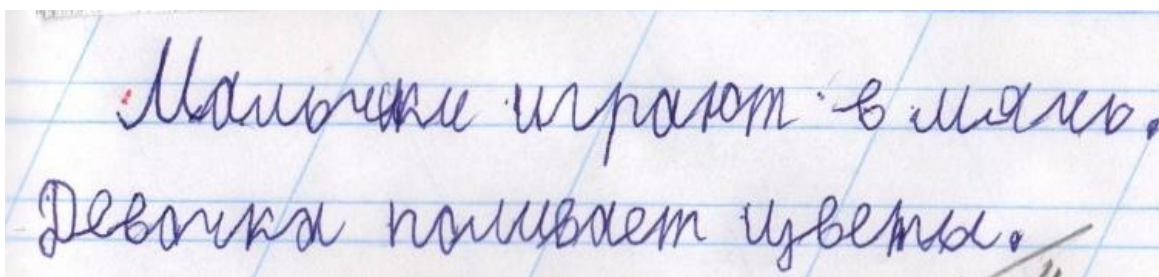 Мальчики играют в мячь.
Девочка поливает цветы.